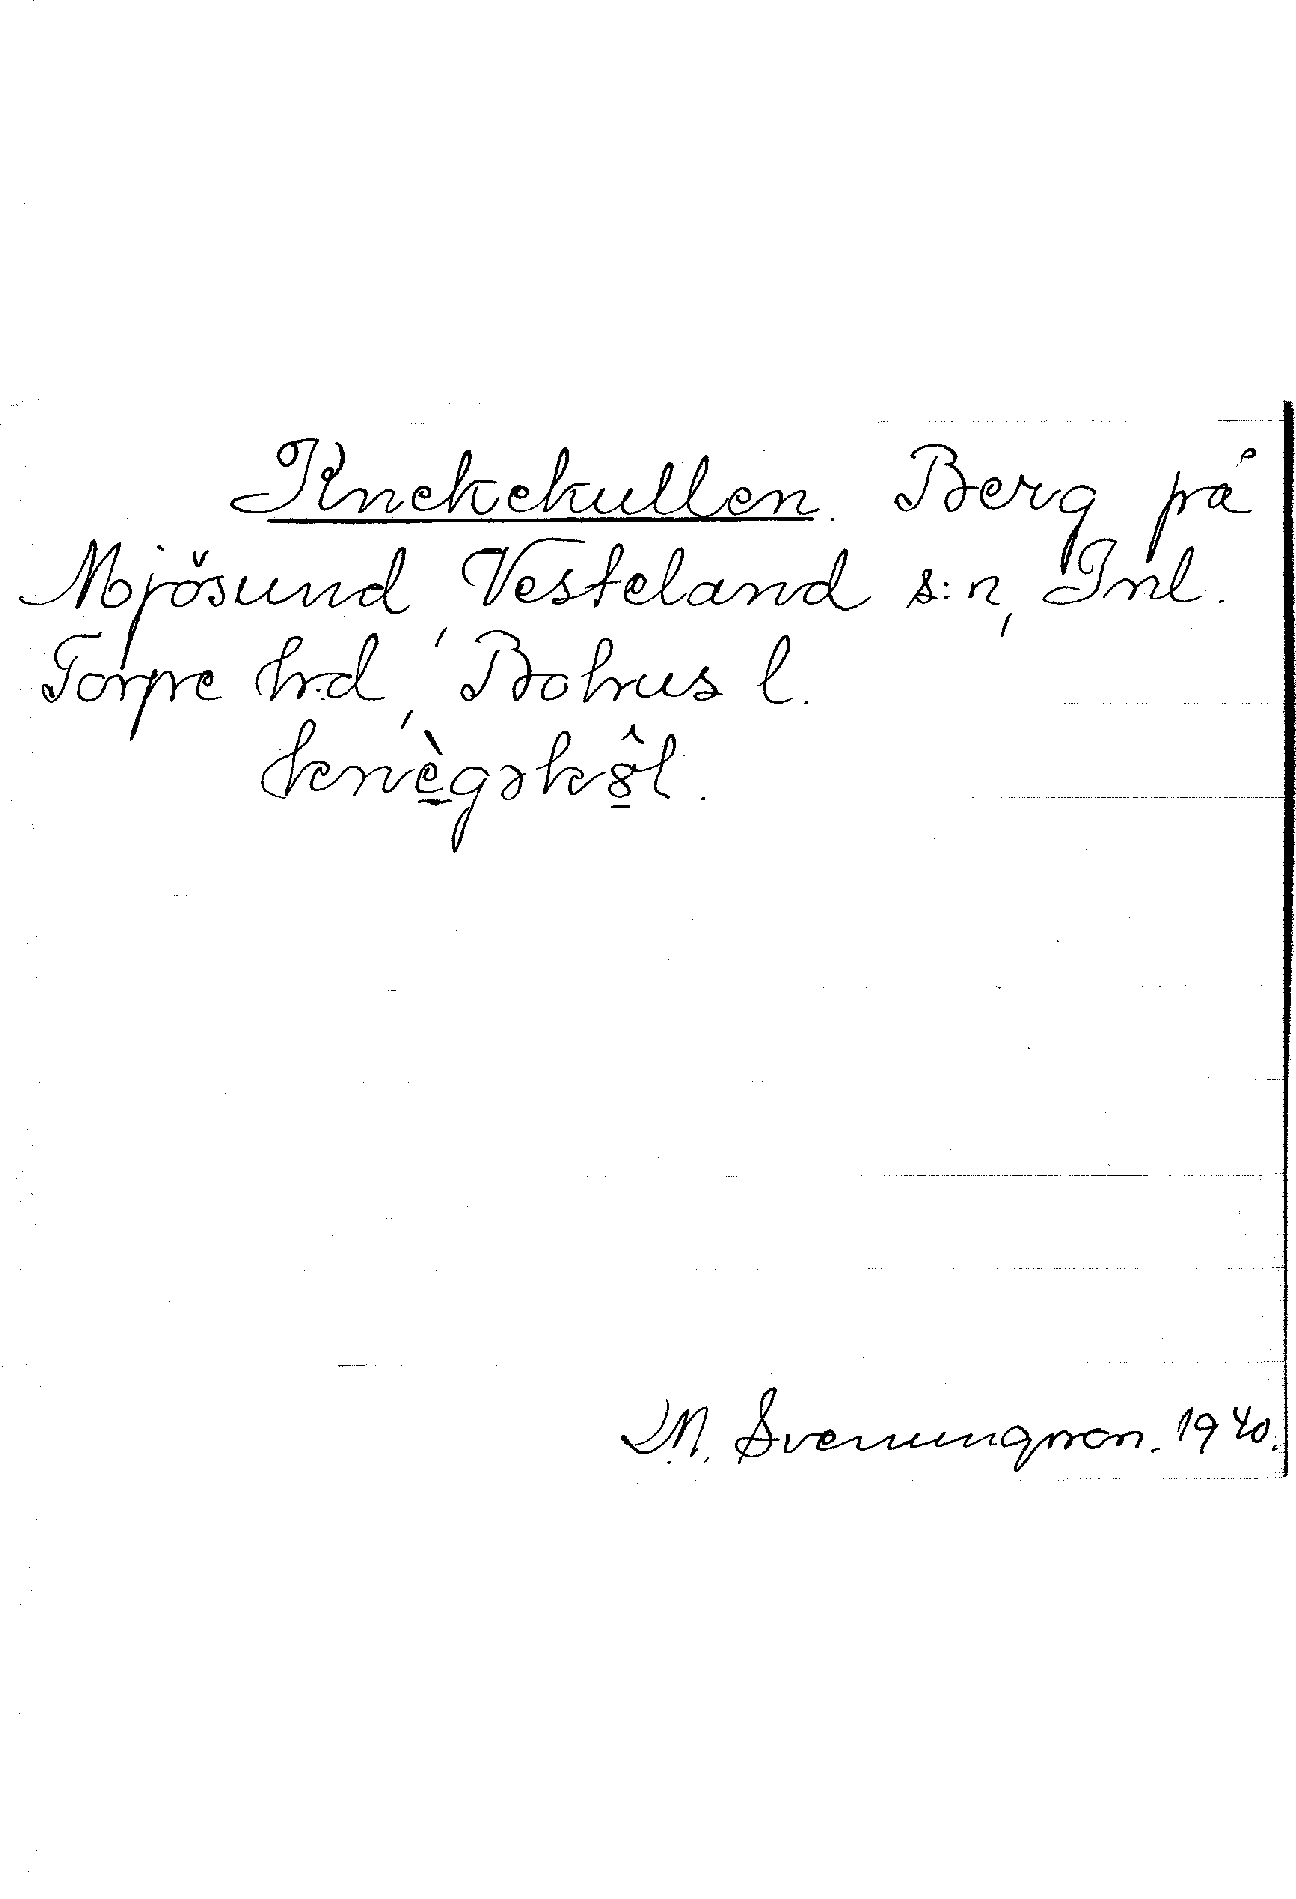 Knekekullen. Berg på
Mjösund, Vesteland s:n, Inl.
Torpe hrd, Bohus l.
knègəkôl.
Svenungsson. 1940.